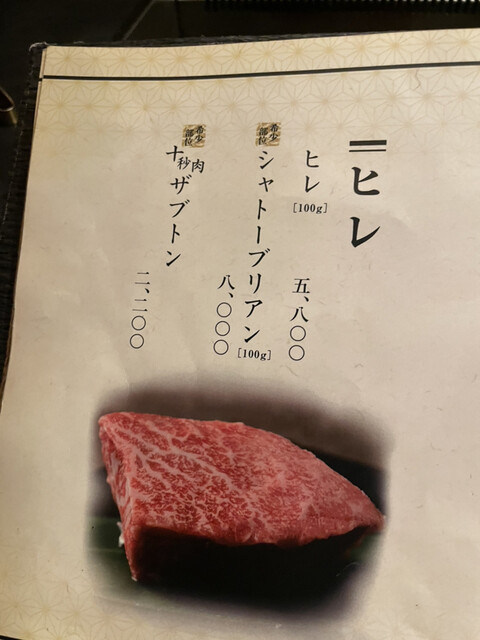 ヒレ
ヒレ[100g]
五、八〇〇
希少部位
シャトーブリアン[100g]
八、〇〇〇
希少部位
十秒肉ザブトン
二、二〇〇